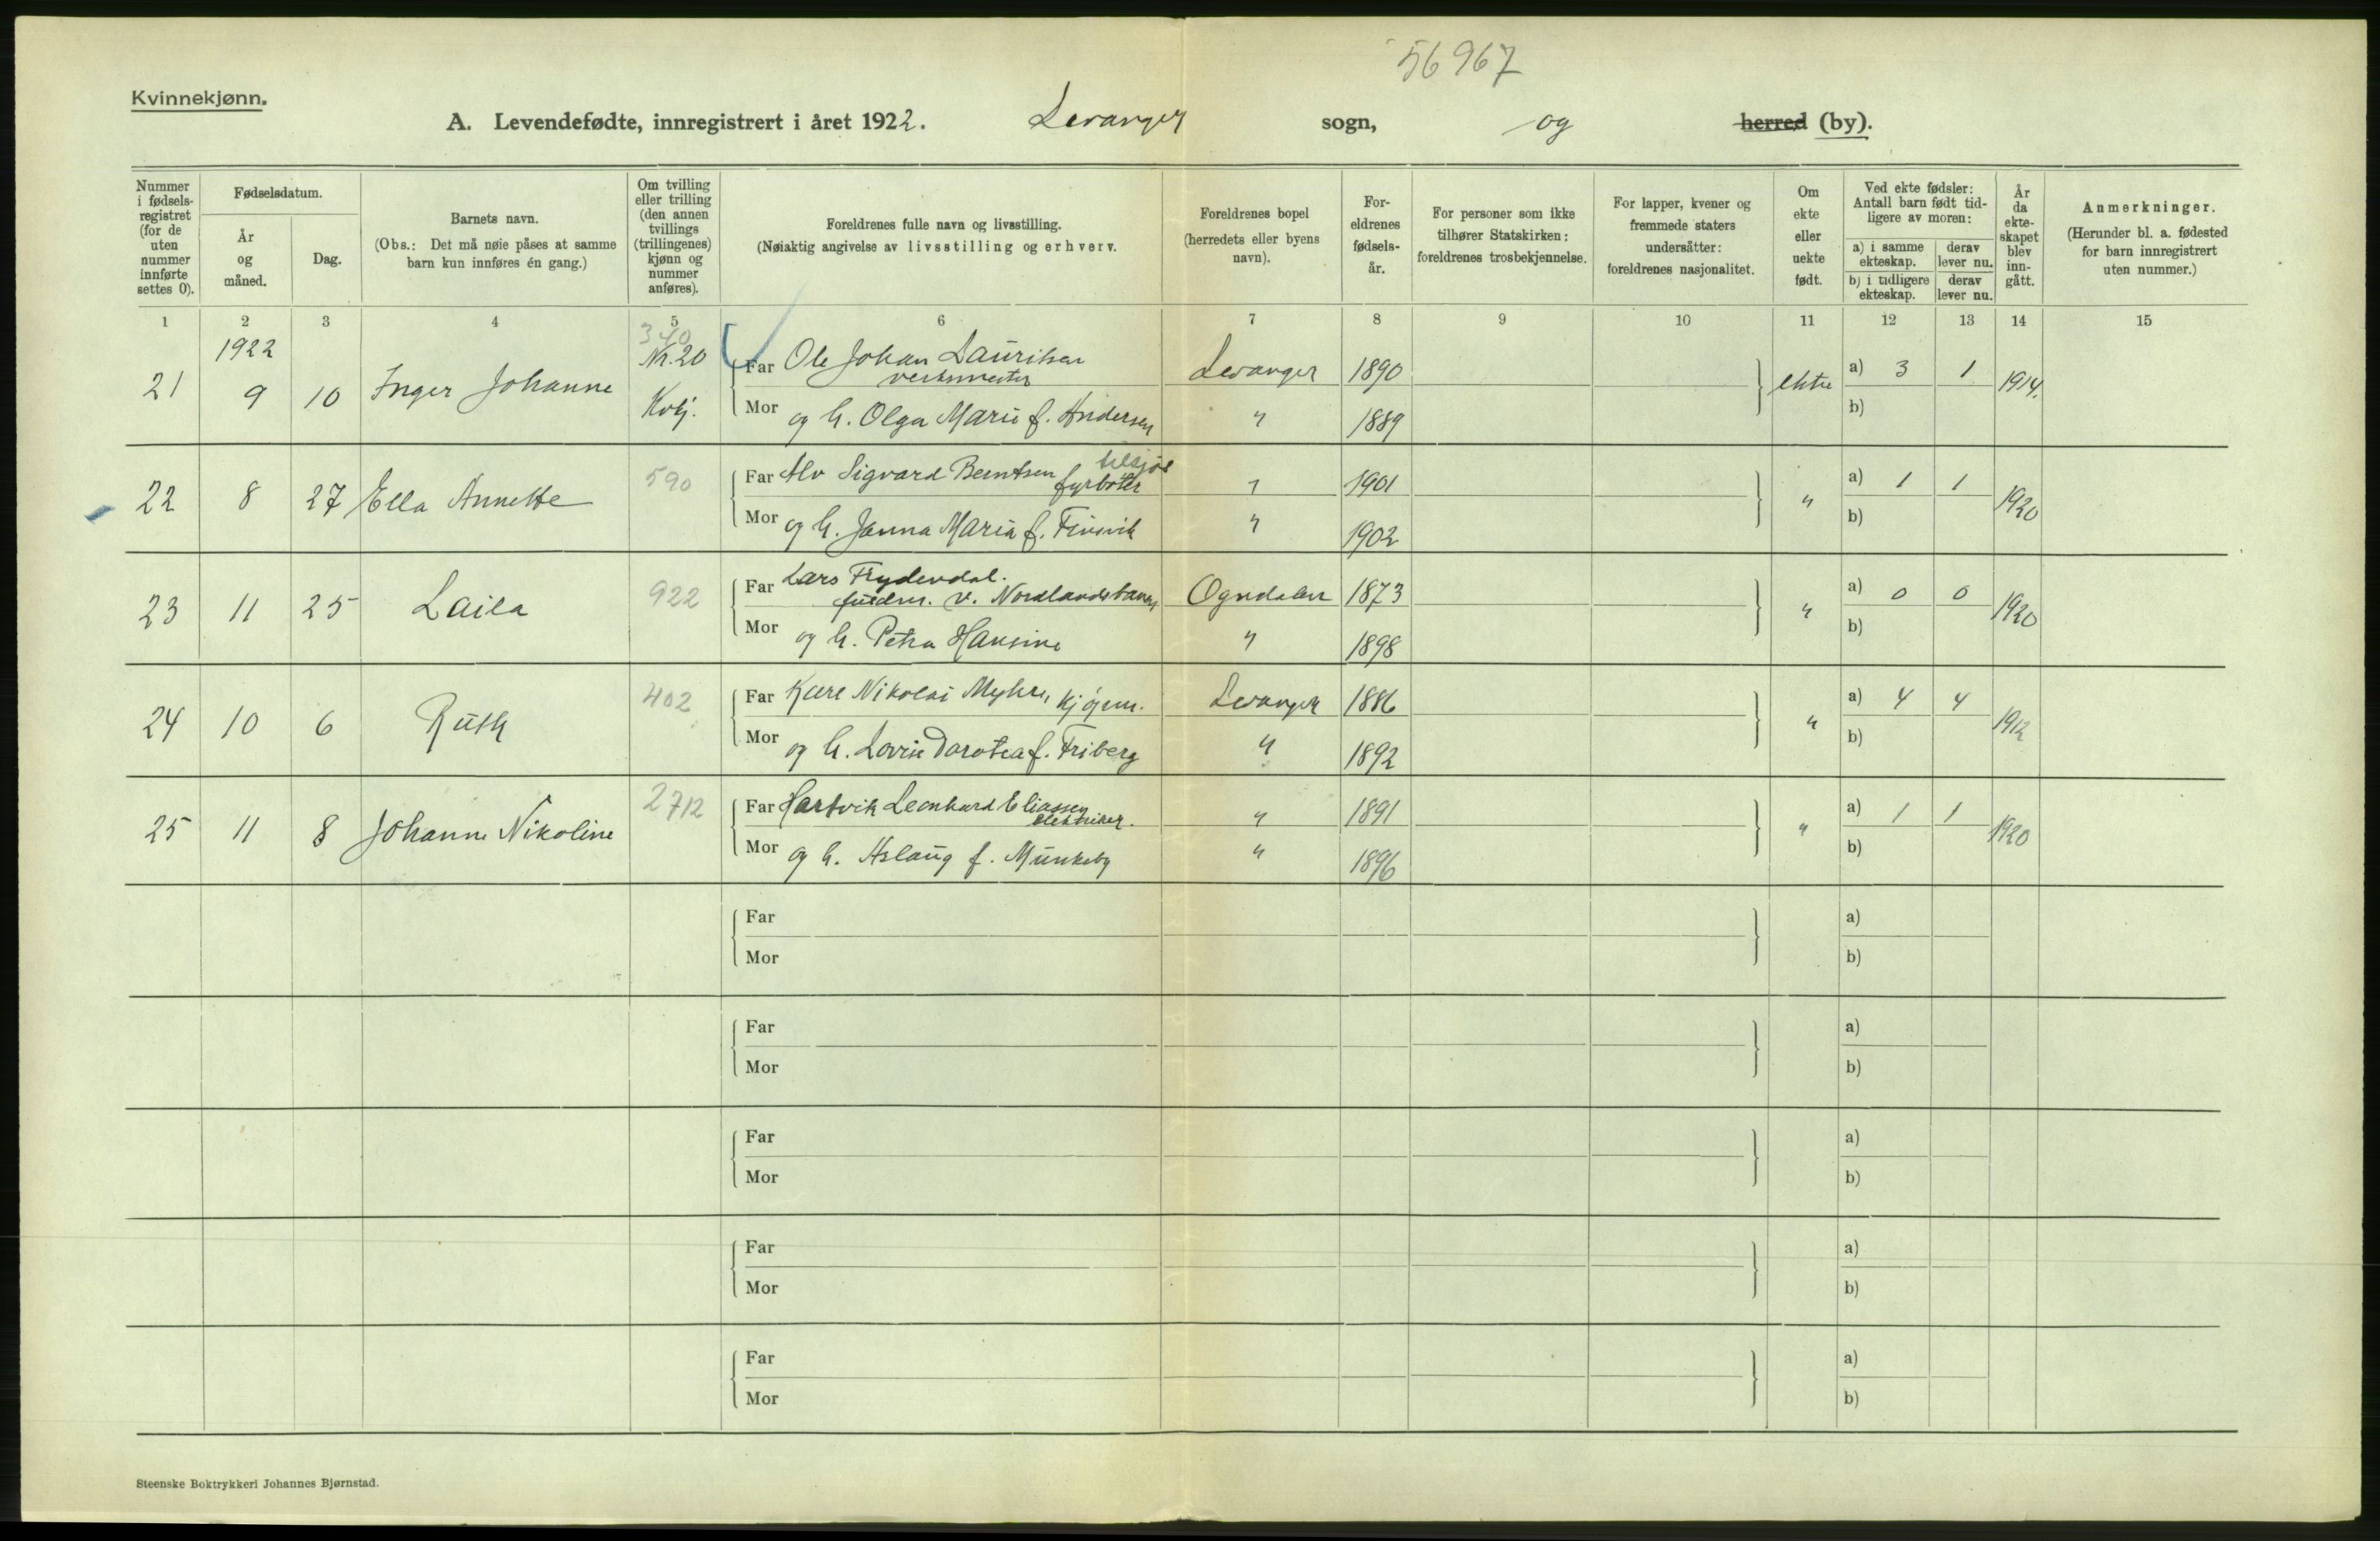 56967
Kvinnekjønn.
A. Levendefødte, innregistrert i året 1922. Levanger sogn, og herred (by).
Nummer i fødsels-registret (for de uten nummer innførte settes 0).
Fødselsdatum.
År og måned.
Dag.
Barnets navn.
(Obs.: Det må nøie påses at samme barn kun innføres én gang.)
Om tvilling eller trilling (den annen tvillings (trillingenes) kjønn og nummer anføres).
Foreldrenes fulle navn og livsstilling.
(Nøiaktig angivelse av livsstilling og erhverv.
Foreldrenes bopel (herredets eller byens navn).
For-eldrenes fødsels-år.
For personer som ikke tilhører Statskirken: foreldrenes trosbekjennelse.
For lapper, kvener og fremmede staters undersåtter: foreldrenes nasjonalitet.
Om ekte eller uekte født.
Ved ekte fødsler: Antall barn født tid-ligere av moren:
a) i samme ekteskap.
derav lever nu.
b) i tidligere ekteskap.
derav lever nu.
År da ekte-skapet blev inn-gått.
Anmerkninger.
(Herunder bl. a. fødested for barn innregistrert uten nummer.)
1 2 3 4 5 6 7 8 9 10 11 12 13 14 15
1922
340
21 9 10 Inger Johanne Nr. 20 Kvkj.
Far Ole Johan Lauritsen verksmester Levanger 1890 ekte a) 3 1 1914.
Mor og h. Olga Marie f. Andersen " 1889 b)
22 8 27 Ella Annette 590
Far Alv Sigvard Berntsen fyrbøter tilsjøs " 1901 " a) 1 1 1920
Mor og h. Janna Maria f. " 1902 b)
23 11 25 Laila 922
Far Lars Frydendal. v. Nordlandsbanen Ogndalen 1873 " a) 0 0 1920
Mor og h. Petra Hansine " 1898 b)
24 10 6 Ruth 402
Far Kåre Nikolai Myhre, kjøpm. Levanger 1886 " a) 4 4 1912
Mor og h. Lovise Dorotea f. Friberg " 1892 b)
25 11 8 Johanne Nikoline 2712
Far Hartvik Leonhard Eliassen elektriker. " 1891 " a) 1 1 1920
Mor og h. Aslaug f. Munkeby " 1896 b)
Far a)
Mor b)
Far a)
Mor b)
Far a)
Mor b)
Far a)
Mor b)
Far a)
Mor b)
Steenske Boktrykkeri Johannes Bjørnstad.